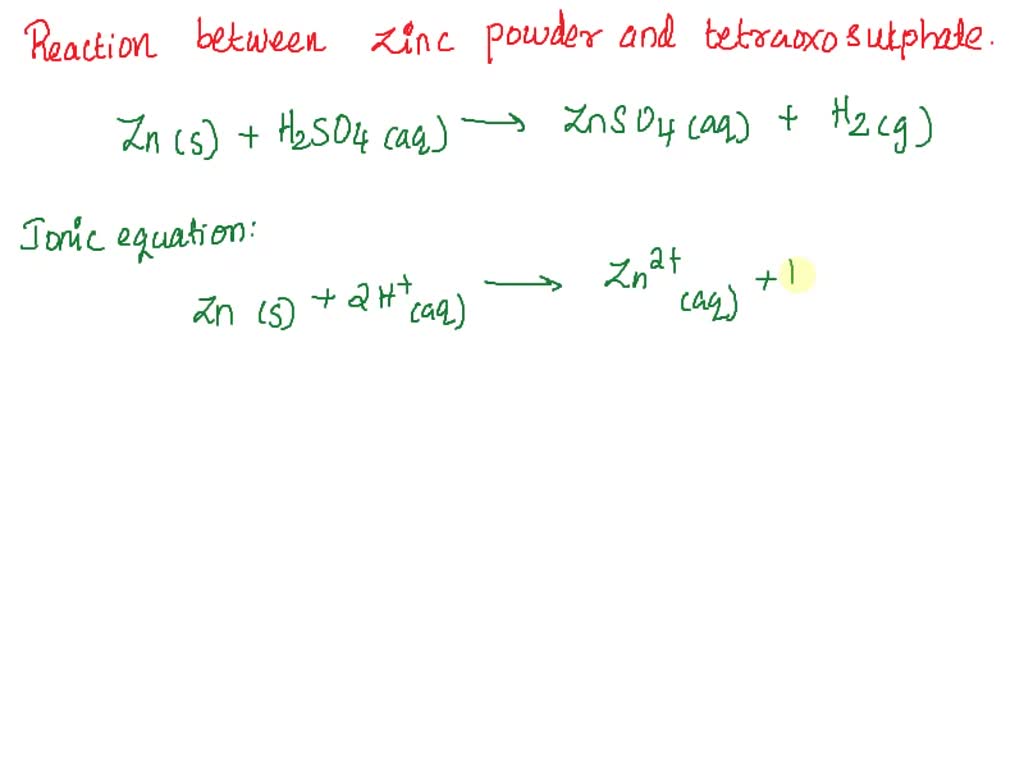 Reaction between Zinc powder and tetraoxosulphate.
Zn (s) + H2SO4 (aq) → ZnSO4 (aq) + H2 (g)
Ionic equation:
Zn (s) + 2H+ (aq) → Zn2+ (aq) +